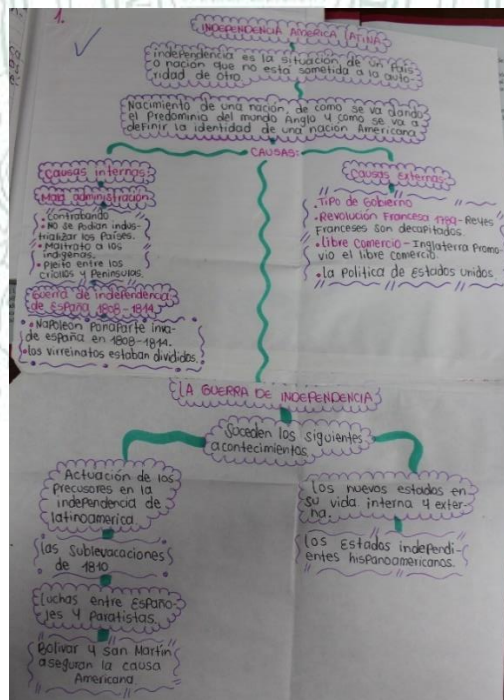 1.
INDEPENDENCIA AMERICA LATINA
independencia es la situación de un País
o nación que no está sometida a la auto-
ridad de otro.
Nacimiento de una nación, de como se va dando
el Predominio del mundo Anglo y como se va a
definir la identidad de una nación Americana.
CAUSAS:
Causas internas
Mala administración
• Contrabando
• No se Podian indus-
trializar los Países.
• Maltrato a los
indígenas.
• Pleito entre los
criollos y Peninsulas.
Guerra de independencia
de España 1808-1814.
• Napoleon Ponaparte inva-
de españa en 1808-1814.
• los virreinatos estaban divididos.
Causas Externas
• Tipo de Gobierno
• Revolución Francesa 1789-Reyes
Franceses son decapitados.
• libre comercio - Inglaterra Promo-
vio el libre comercio.
• la Política de Estados Unidos
LA GUERRA DE INDEPENDENCIA
Suceden los siguientes
acontecimientos
Actuación de los
Precusores en la
independencia de
latinoamerica.
las Sublevacaciones
de 1810
Luchas entre Españo-
les y Paratistas.
Bolivar y san Martín
aseguran la causa
Americana.
los nuevos estados en
su vida interna y exter-
na.
los Estados independi-
entes hispanoamericanos.